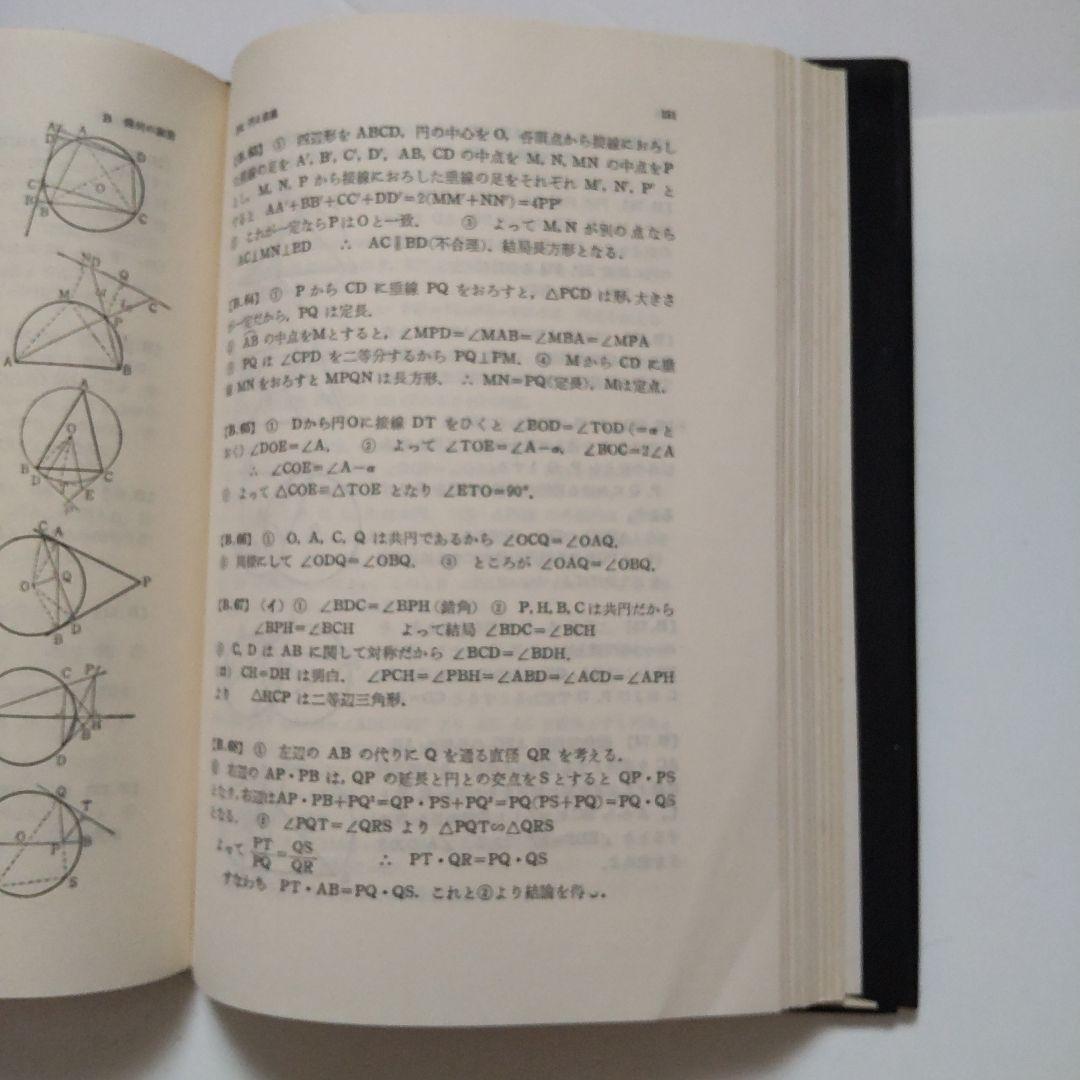 B 幾何の演習
[B.63] ① 四辺形を ABCD, 円の中心を O, 各頂点から接線におろし
の足を A′, B′, C′, D′, AB, CD の中点を M, N, MN の中点をP
とし, M, N, P から接線におろした垂線の足をそれぞれ M′, N′, P′ と
すると AA′+BB′+CC′+DD′=2(MM′+NN′)=4PP′
② これが一定ならPはOと一致. ③ よって M, N が別の点なら
AC⊥MN⊥BD ∴ AC∥BD(不合理). 結局長方形となる.
[B.64] ① P から CD に垂線 PQ をおろすと, △PCD は形, 大きさ
が一定だから, PQ は定長.
② AB の中点をMとすると, ∠MPD=∠MAB=∠MBA=∠MPA
③ PQ は ∠CPD を二等分するから PQ⊥PM. ④ Mから CD に垂
線 MN をおろすと MPQN は長方形. ∴ MN=PQ(定長), Mは定点.
[B.65] ① Dから円Oに接線 DT をひくと ∠BOD=∠TOD (=α と
おく) ∠DOE=∠A. ② よって ∠TOE=∠A−α, ∠BOC=2∠A
∴ ∠COE=∠A−α
③ よって △COE≡△TOE となり ∠ETO=90°.
[B.66] ① O, A, C, Q は共円であるから ∠OCQ=∠OAQ.
② 同様にして ∠ODQ=∠OBQ. ③ ところが ∠OAQ=∠OBQ.
[B.67] (イ) ① ∠BDC=∠BPH (錯角) ② P, H, B, C は共円だから
∠BPH=∠BCH よって結局 ∠BDC=∠BCH
③ C, D は AB に関して対称だから ∠BCD=∠BDH.
(ロ) CH=DH は明白. ∠PCH=∠PBH=∠ABD=∠ACD=∠APH
より △HCP は二等辺三角形.
[B.68] ① 左辺の AB の代りに Q を通る直径 QR を考える.
② 右辺の AP・PB は, QP の延長と円との交点をSとすると QP・PS
となり, 右辺はAP・PB+PQ²=QP・PS+PQ²=PQ(PS+PQ)=PQ・QS
となる. ③ ∠PQT=∠QRS より △PQT∽△QRS
よって PT/PQ=QS/QR ∴ PT・QR=PQ・QS
すなわち PT・AB=PQ・QS. これと②より結論を得